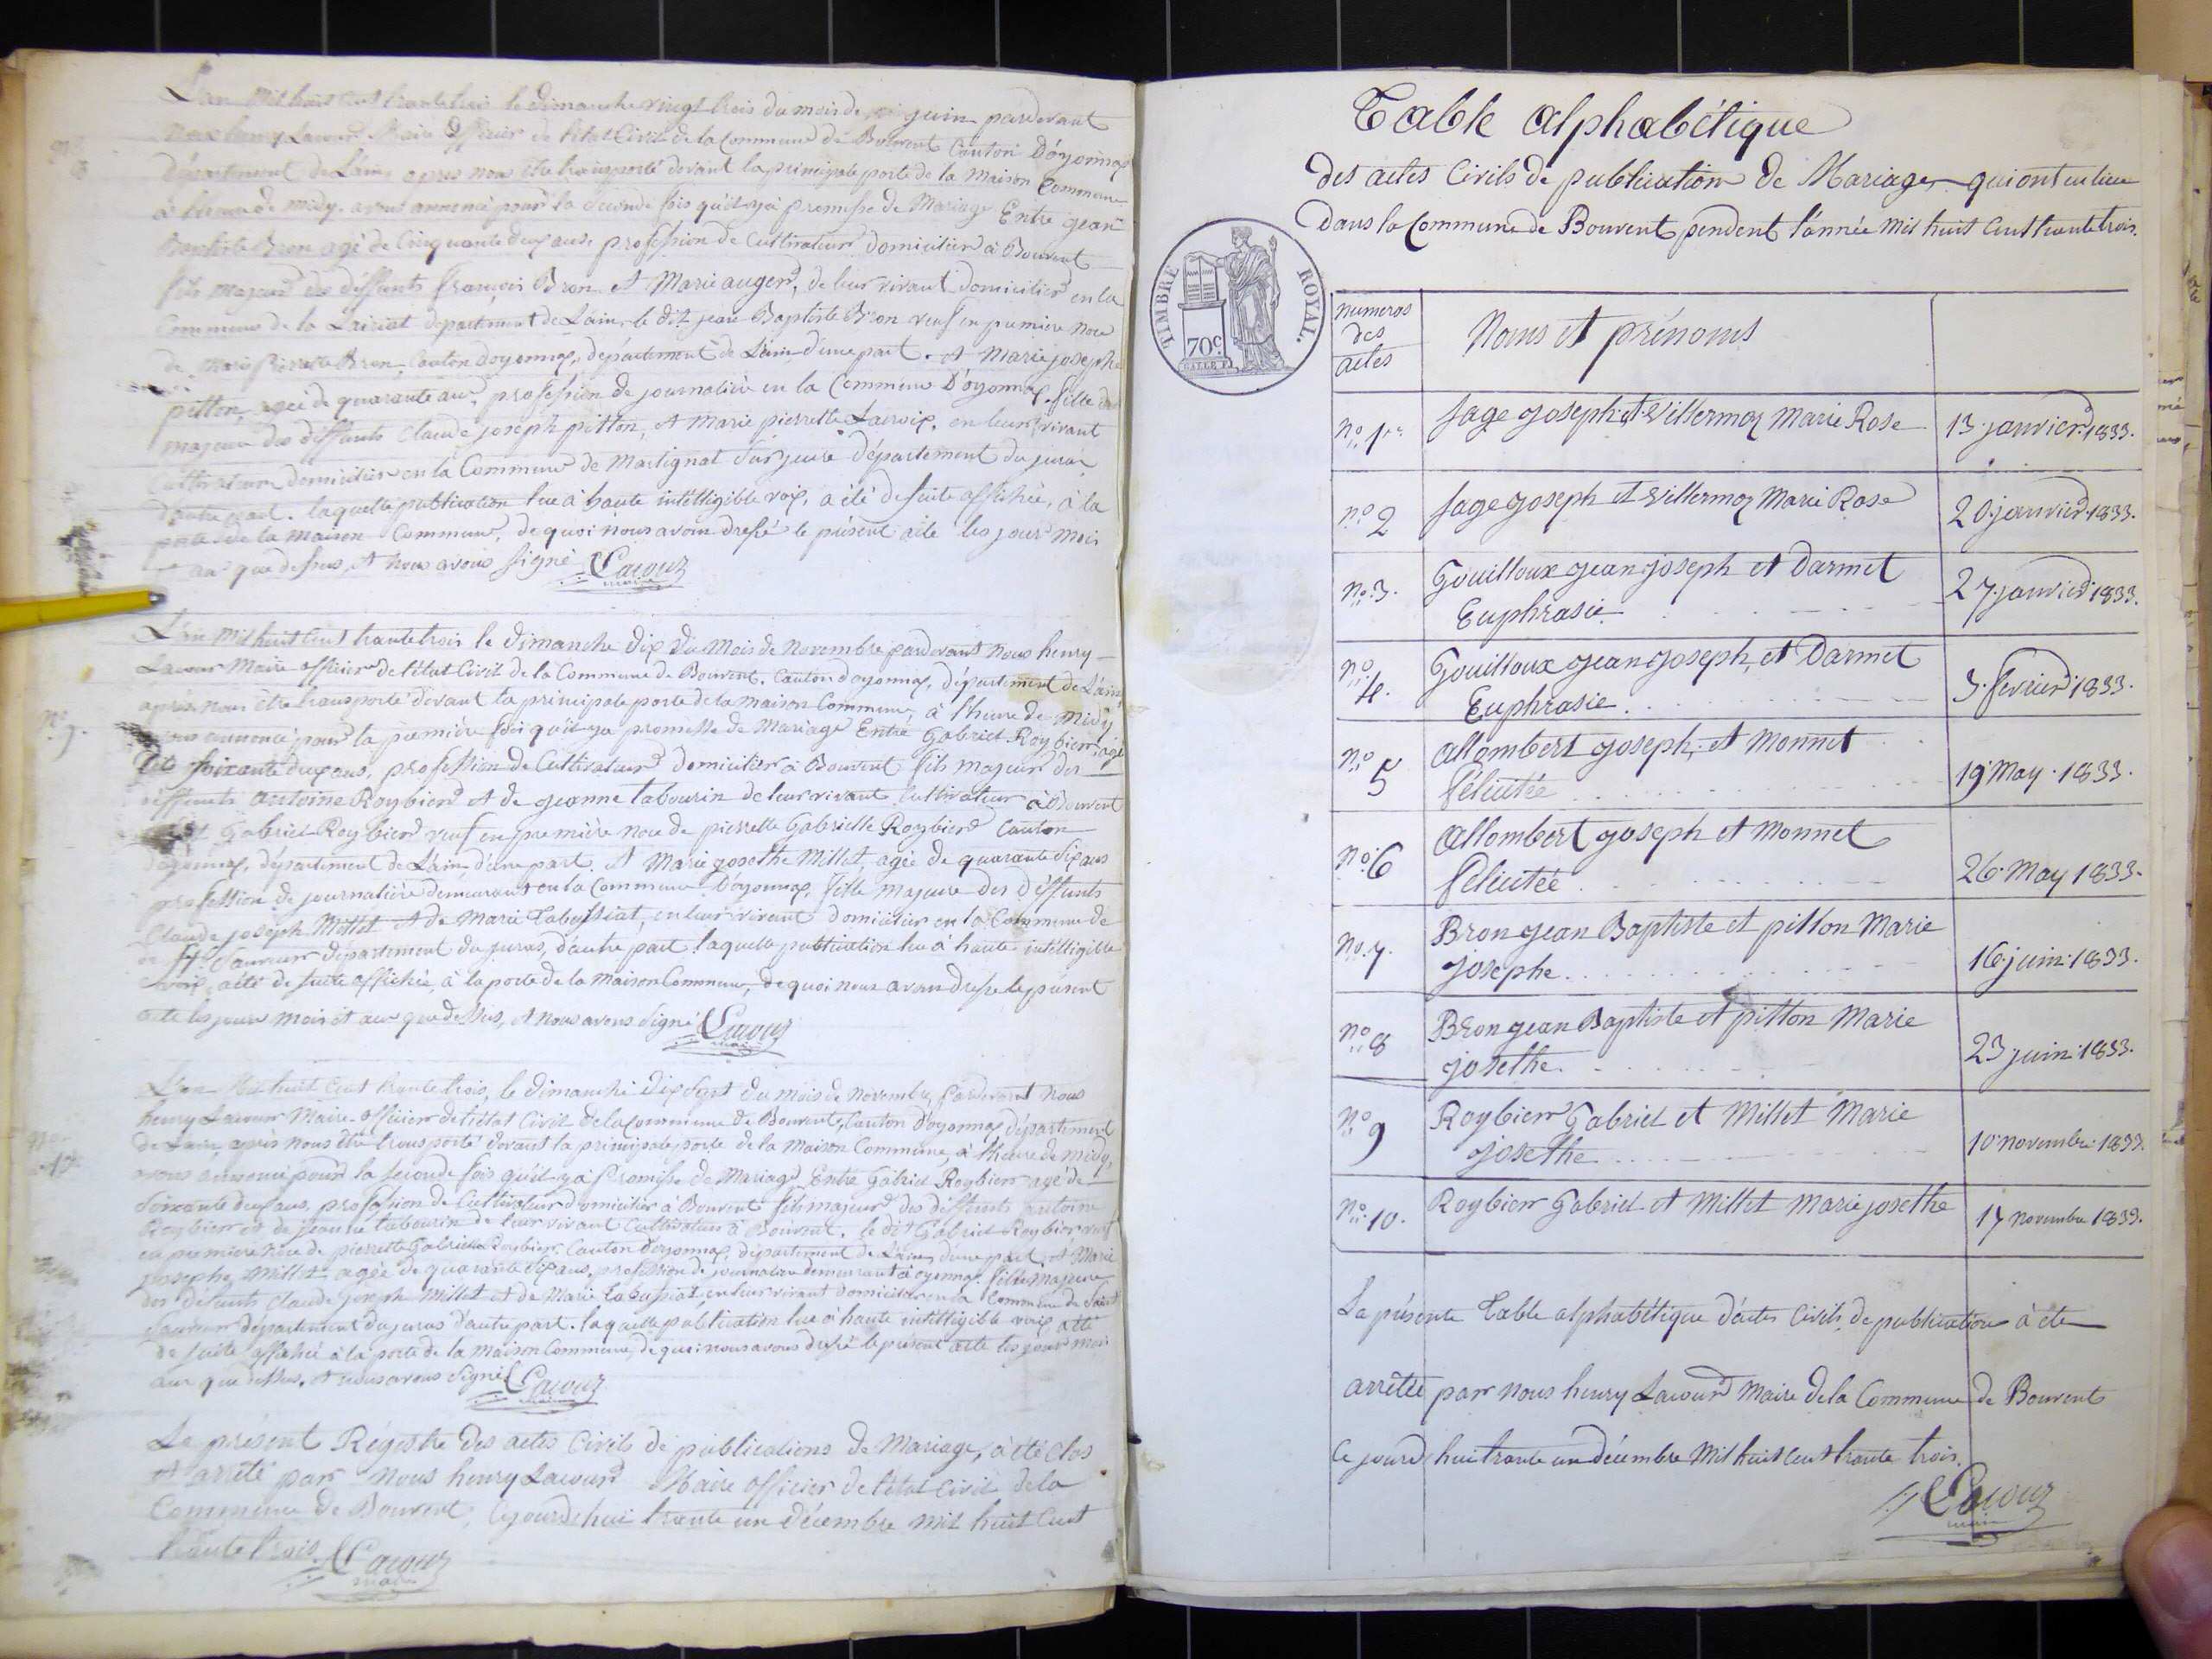 L'an mil huit cent trente trois le dimanche vingt trois du mois de juin pardevant
nous henry Lacour Maire officier de l'état Civil de la Commune de Bouvent Canton D'oyonnax
N° 8
département de L'ain, apres nous être transporté devant la principale porte de la Maison Commune
à l'heure de midy, avons annoncé pour la seconde fois qu'il y a promesse de Mariage Entre jean
Baptiste Bron agé de Cinquante deux ans, profession de Cultivateur domicilier à Bouvent
fils majeur des déffunts françois Bron et Marie auger, de leur vivant domicilier en la
Commune de la département de L'ain, le dit jean Baptiste Bron veuf en premiere noce
de Marie Pierrette Bron, Canton doyonnax, département de L'ain d'une part. et Marie josephe
pitton, agée de quarante ans, profession de journalière en la Commune D'oyonnax, fille
majeure des déffunts Claude joseph pitton, et Marie pierrette Lacroix, en leur vivant
Cultivateur domicilier en la Commune de Martignat département du jura
d'autre part. laquelle publication lue à haute intélligible voix, a été de suite affichée, à la
porte de la maison Commune, de quoi nous avon dressé le présent acte les jour mois
et an que dessus, et nous avons signé Lacour
maire
L'an mil huit Cent trente trois le dimanche dix du Mois de Novembre pardevant Nous henry
Lacour Maire officier de l'état Civil de la Commune de Bouvent, Canton doyonnax, département de L'ain
après nous être transporté devant la principale porte de la maison Commune, à l'heure de midy
N° 9.
avons annoncé pour la première fois qu'il y a promesse de Mariage Entre Gabriel Roybier agé
de soixante deux ans, profession de Cultivateur domicilier à Bouvent fils majeur des
déffunts antoine Roybier et de jeanne tabourin de leur vivant Cultivateur à Bouvent
Gabriel Roybier veuf en première noce de pierrette Gabrielle Roybier Canton
doyonnax, département de L'ain d'une part. et Marie josethe Millet, agée de quarante six ans
profession de journalière demeurant en la Commune D'oyonnax, fille majeure des déffunts
Claude joseph Millet et de Marie en leur vivant domicilier en la Commune de
St Sauveur département du juras, d'autre part. laquelle publication lue à haute intélligible
voix, a été de suite affichée, à la porte de la Maison Commune, de quoi nous avon dressé le présent
acte les jour mois et an que dessus, et nous avons signé Lacour
maire
L'an Mil huit Cent trente trois, le dimanche dix sept du mois de Novembre, Pardevant Nous
henry Lacour Maire officier de l'état Civil de la Commune de Bouvent, Canton d'oyonnax département
de L'ain, après nous être transporté devant la principale porte de la Maison Commune, à l'heure de midy,
N° 10
avons annoncé pour la seconde fois qu'il y a promesse de Mariage Entre Gabriel Roybier agé de
soixante deux ans, profession de Cultivateur domicilier à Bouvent fils majeur des déffunts antoine
Roybier et de jeanne tabourin de leur vivant Cultivateur à Bouvent. le dit Gabriel Roybier veuf
en première noce de pierrette Gabrielle Roybier, Canton d'oyonnax, département de L'ain d'une part, et Marie
josephe Millet agée de quarante six ans, profession de journalière demeurant à oyonnax fille majeure
des défunts Claude joseph Millet et de Marie en leur vivant domicilier en la Commune de Saint
Sauveur département du juras d'autre part. laquelle publication lue à haute intélligible voix a été
de suite affiché à la porte de la Maison Commune, de quoi nous avons dressé le présent acte les jour mois
an que dessus, et nous avons signé Lacour
maire
Le présent Régistre des actes Civils de publications de Mariage, à été clos
et arrêté par Nous henry Lacour Maire officier de l'état Civil de la
Commune de Bouvent, Cejourd'hui trente un décembre mil huit Cent
trente trois. Lacour
maire
Table alphabétique
des actes Civils de publication de Mariage qui ont eu lieu
dans la Commune de Bouvent pendent l'année mil huit Cent trente trois.
TIMBRE ROYAL.
70c
numeros
des
actes
Noms et prénoms
n° 1er
Sage joseph et Villermoz Marie Rose
13 janvier 1833.
n° 2
Sage joseph et Villermoz Marie Rose
20 janvier 1833.
n° 3.
Gouilloux jean joseph et Darmet
Euphrasie
27 janvier 1833.
n° 4.
Gouilloux jean joseph, et Darmet
Euphrasie
3 fevrier 1833.
n° 5
allombert joseph, et Monnet
félicitée
19 May 1833.
n° 6
allombert joseph et Monnet
félicitée
26 May 1833.
no. 7.
Bron jean Baptiste et pitton Marie
josephe
16 juin 1833.
n° 8
Bron jean Baptiste et pitton Marie
josethe
23 juin 1833.
n° 9
Roybier Gabriel et Millet Marie
josethe
10 novembre 1833.
n° 10.
Roybier Gabriel et Millet Marie josethe
17 novembre 1833.
La présente table alphabétique d'actes Civils de publication à été
arrêtée par nous henry Lacour Maire de la Commune de Bouvent
Ce jourd'hui trente un décembre mil huit Cent trente trois.
Lacour
maire